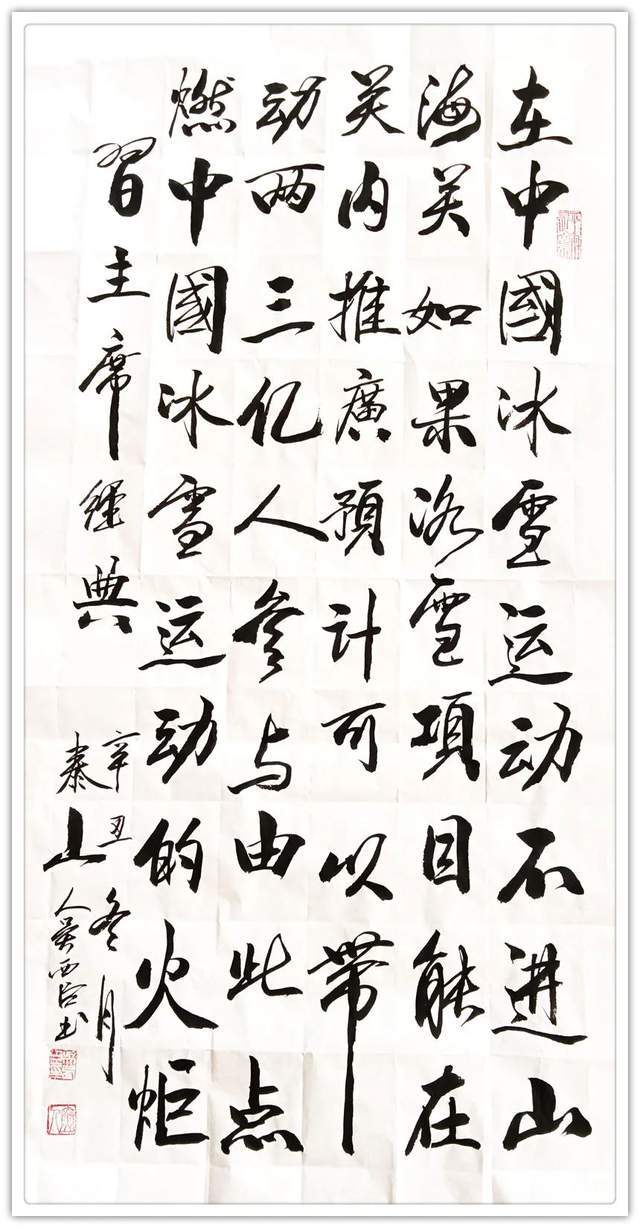 在中國冰雪运动不進山
海关如果冰雪項目能在
关内推廣預计可以帶
动两三亿人参与由此点
燃中國冰雪运动的火炬
習主席經典
辛丑冬月
泰山人吴西书